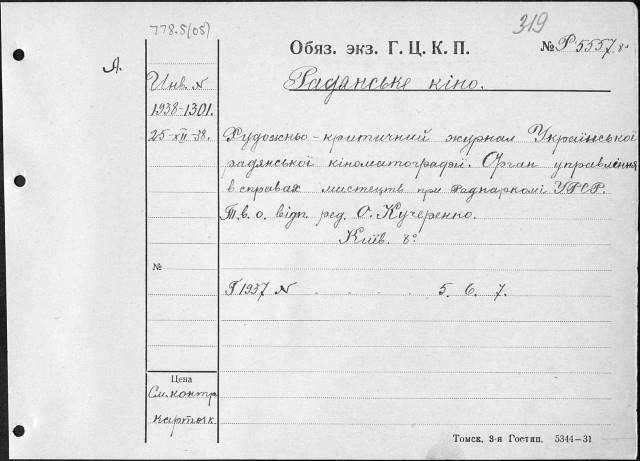 778.5(05)
319
Обяз. экз. Г. Ц. К. П.
№ Р 5557. 8°
А.
Инв. N
1938-1301.
25-XII-38.
Радянське кіно.
Художньо-критичний журнал Української
радянської кіноматографії. Орган управління
в справах мистецтв при Раднаркомі УРСР.
Т. в. о. відп. ред. О. Кучеренко.
Київ. 8°
№
Г 1937 N . . . . 5. 6. 7.
Цена
См. контр.
карточк.
Томск, 3-я Гостип. 5344—31